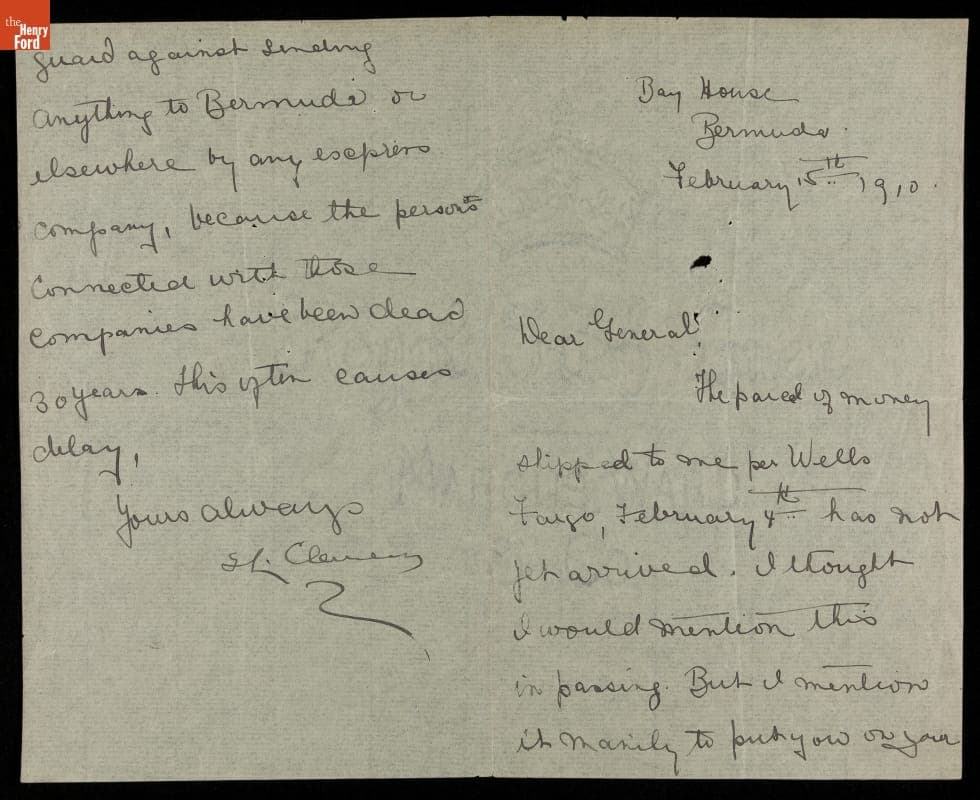 the
Henry
Ford
Bay House
Bermuda.
February 15th 1910.
Dear General:
The parcel of money
shipped to me per Wells
Fargo, February 4th has not
yet arrived. I thought
I would mention this
in passing. But I mention
it mainly to put you on your
guard against sending
anything to Bermuda or
elsewhere by any express
company, because the persons
connected with those
companies have been dead
30 years. This often causes
delay,
Yours always
SL. Clemens